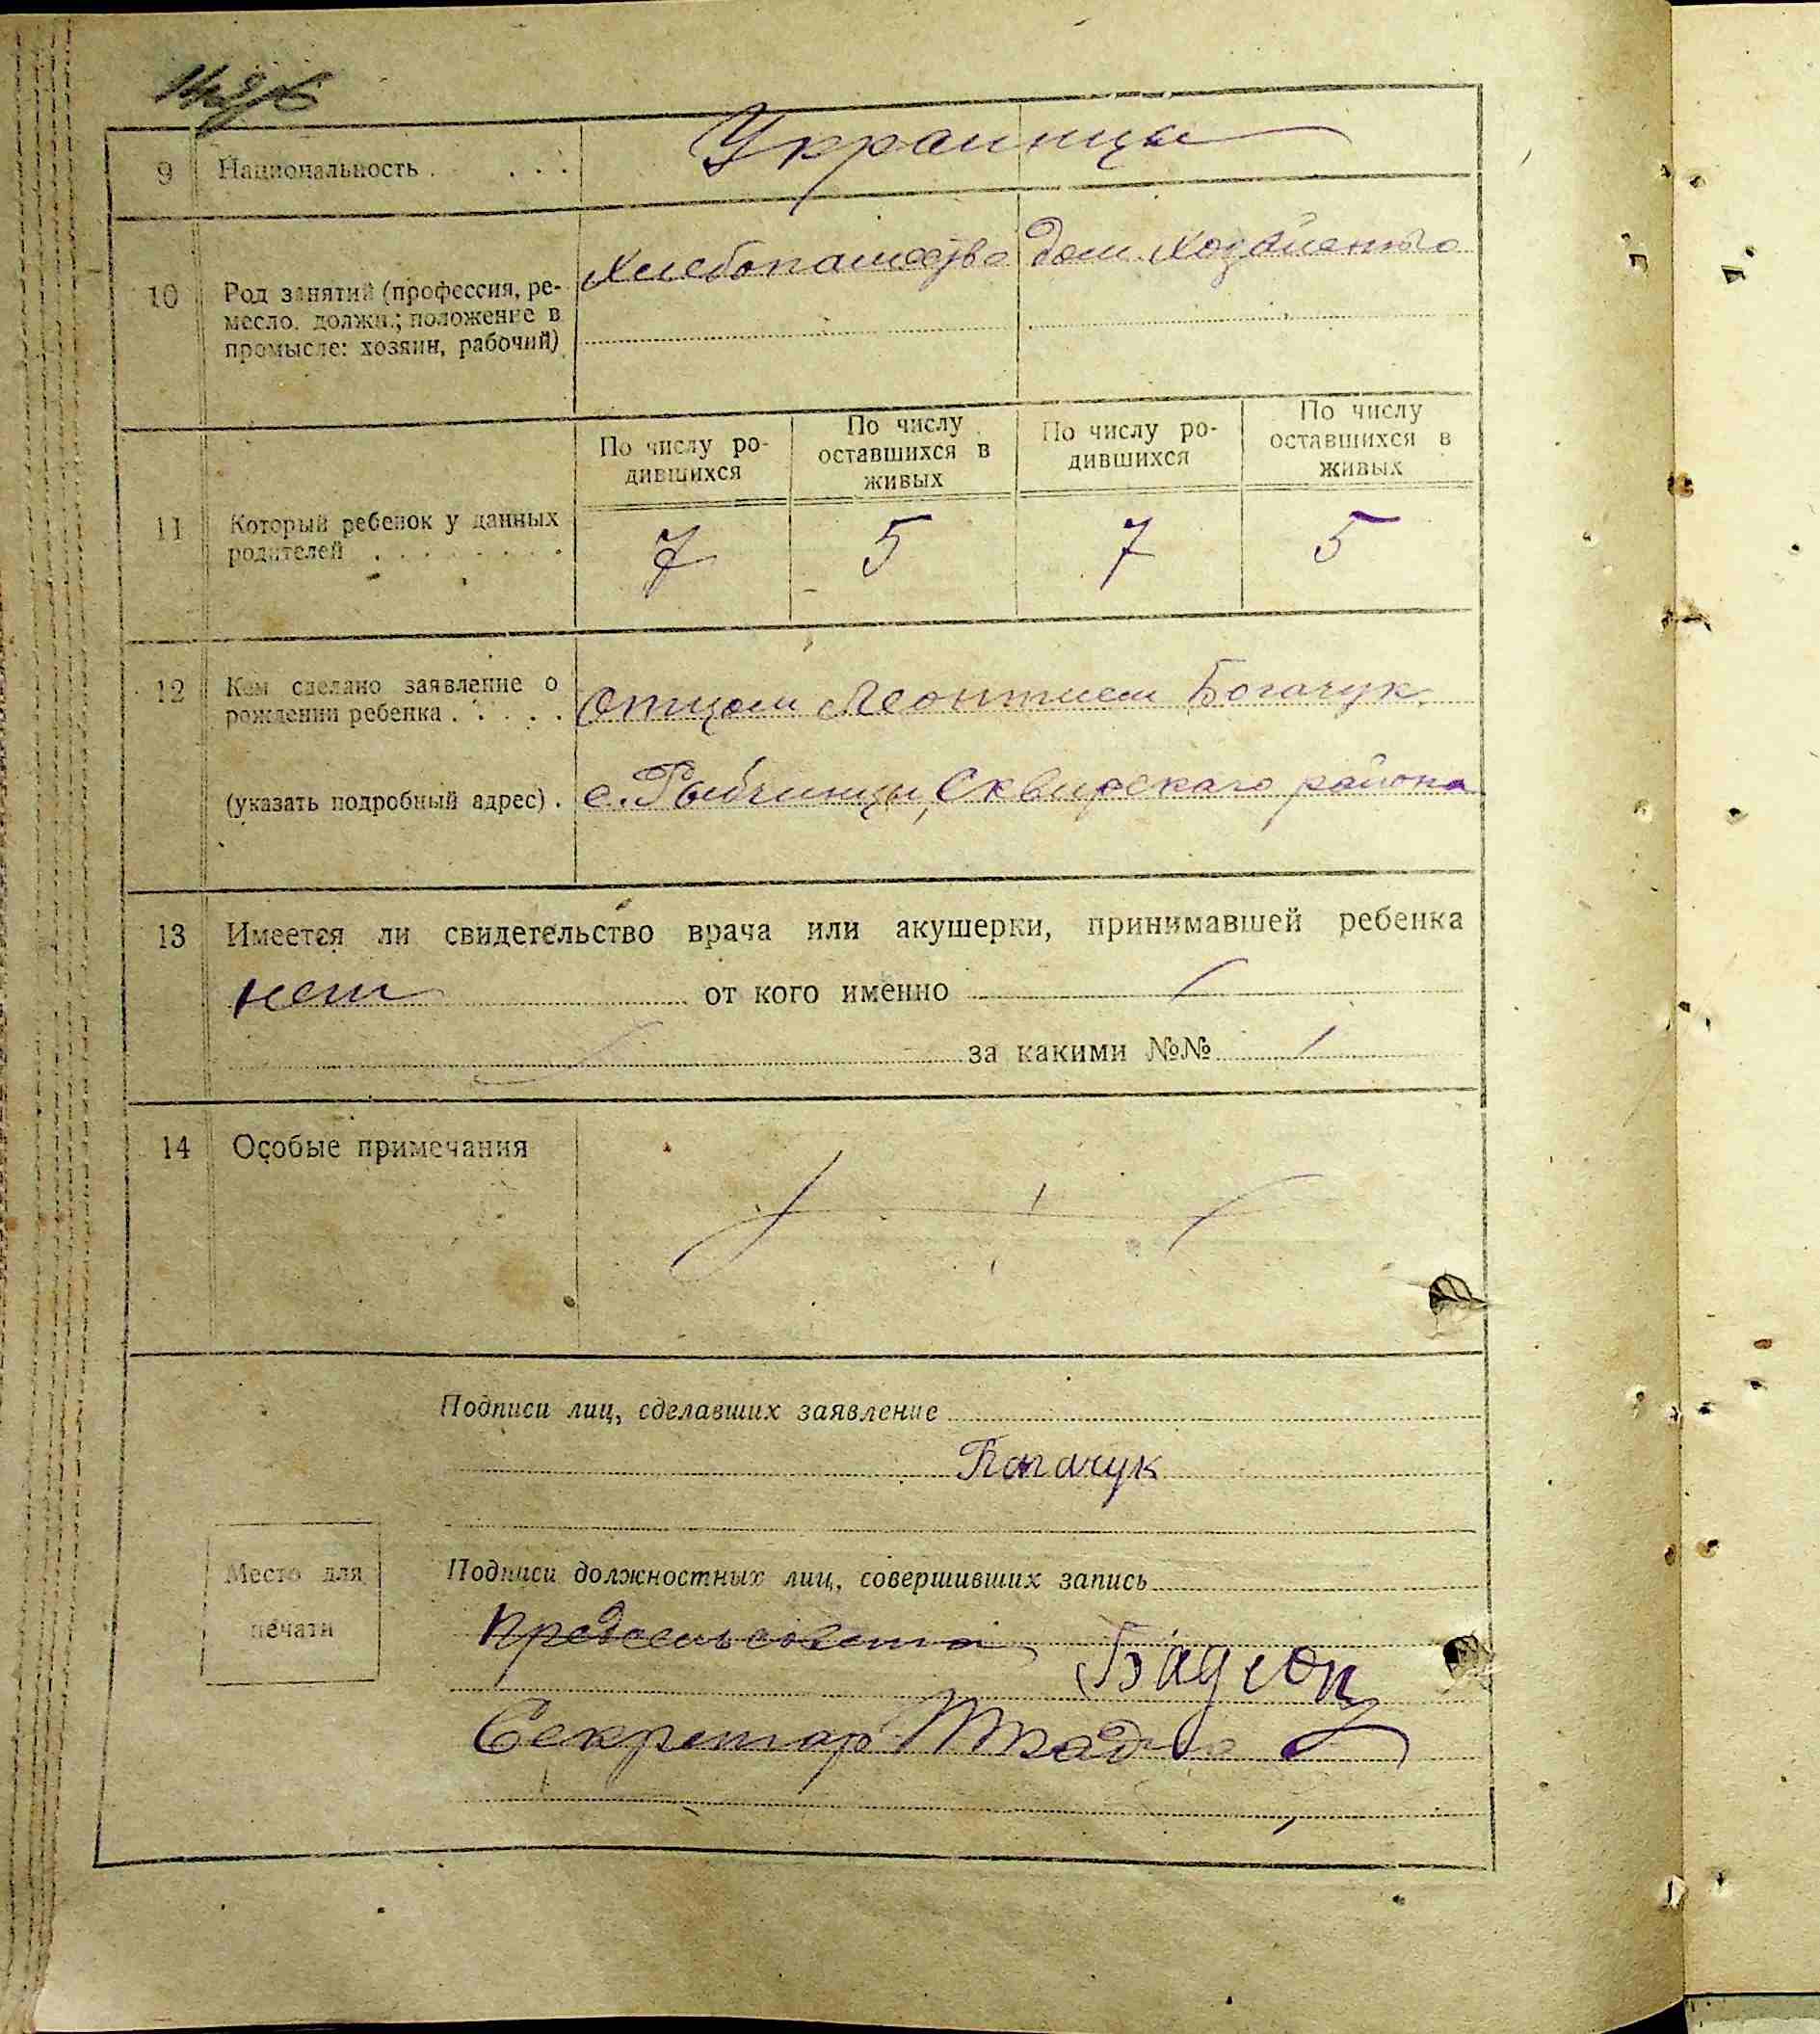 9 Национальность . . . . Украинцы
10 Род занятий (профессия, ре-
месло, должн.; положение в
промысле: хозяин, рабочий)
Хлебопашество дом. хозяйство
По числу ро-
дившихся
По числу
оставшихся в
живых
По числу ро-
дившихся
По числу
оставшихся в
живых
11 Который ребенок у данных
родителей . . . . . . . .
7 5 7 5
12 Кем сделано заявление о
рождении ребенка . . . . .
Отцом Леонтием Богачук
(указать подробный адрес) . с. Рыбчинцы, Сквирскаго района
13 Имеется ли свидетельство врача или акушерки, принимавшей ребенка
нет от кого именно
за какими №№
14 Особые примечания
Подписи лиц, сделавших заявление
Богачук
Место для
печати
Подписи должностных лиц, совершивших запись
Предсельсовета
Секретар